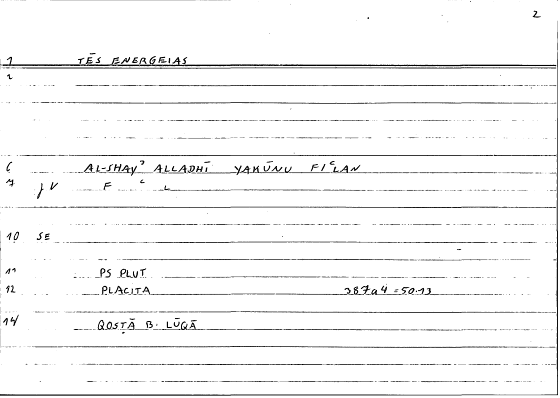 2
1 TĒS ENERGEIAS
2
6 AL-SHAYʾ ALLADHĪ YAKŪNU FIʿLAN
7 jV F ʿ L
10 SE
11 PS PLUT
12 PLACITA 387a4 = 50.13
14 QOSṬĀ B. LŪQĀ